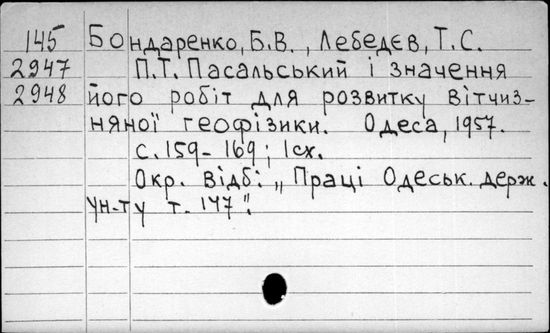 145 Бондаренко, Б.В., Лебедєв, Т.С.
2947 П.Т. Пасальський і значення
2948 його робіт для розвитку вітчиз-
няної геофізики. Одеса, 1957.
с. 159-169; 1сх.
Окр. відб: „Праці Одеськ. держ.
ун-ту т. 147".